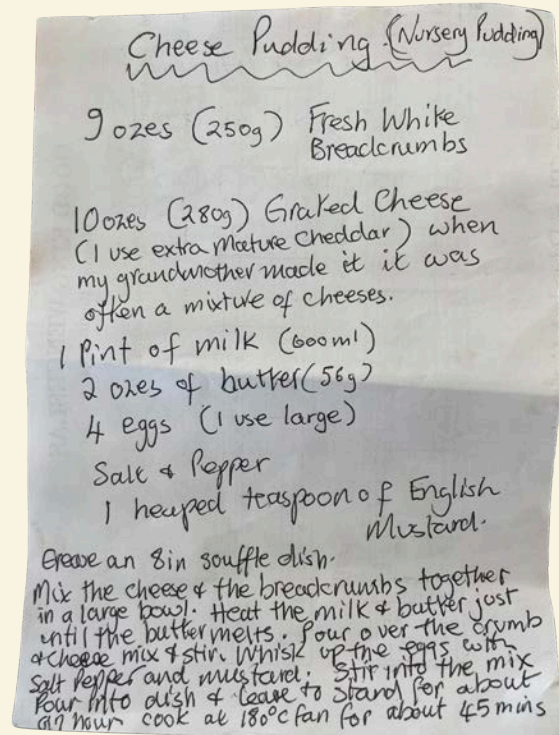 Cheese Pudding (Nursery Pudding)
9 ozes (250g) Fresh White
Breadcrumbs
10 ozes (280g) Grated Cheese
(I use extra Mature Cheddar) when
my grandmother made it it was
often a mixture of cheeses.
1 Pint of milk (600ml)
2 ozes of butter (56g)
4 eggs (I use large)
Salt & Pepper
1 heaped teaspoon of English
Mustard.
Grease an 8in souffle dish.
Mix the cheese & the breadcrumbs together
in a large bowl. Heat the milk & butter just
until the butter melts. Pour over the crumb
& cheese mix & stir. Whisk up the eggs with
Salt Pepper and mustard. Stir into the mix
Pour into dish & leave to stand for about
hour cook at 180°c fan for about 45 mins